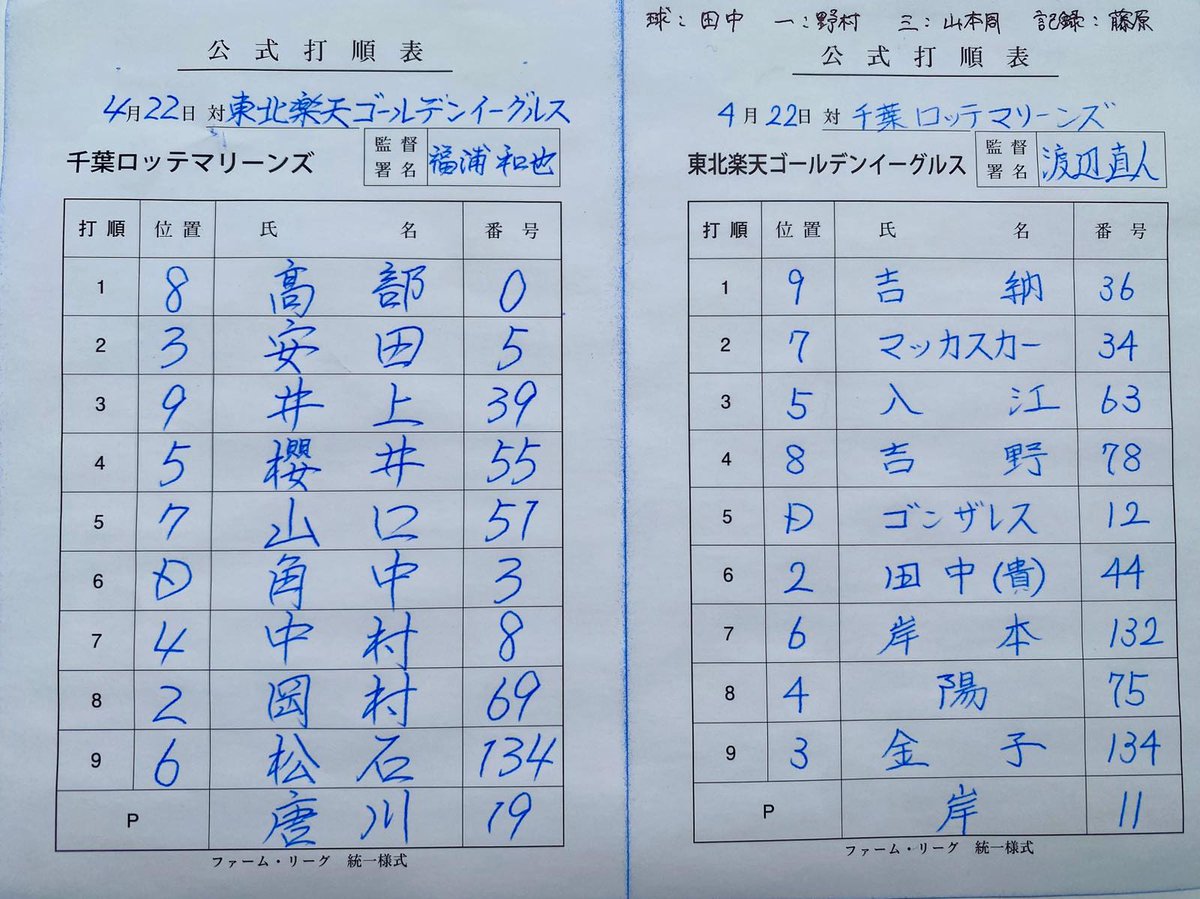 公式打順表
4月22日 対 東北楽天ゴールデンイーグルス
千葉ロッテマリーンズ 監督署名 福浦和也
打順 位置 氏名 番号
1 8 髙部 0
2 3 安田 5
3 9 井上 39
4 5 櫻井 55
5 7 山口 51
6 D 角中 3
7 4 中村 8
8 2 岡村 69
9 6 松石 134
P 唐川 19
ファーム・リーグ 統一様式
球:田中 一:野村 三:山本同 記録:藤原
公式打順表
4月22日 対 千葉ロッテマリーンズ
東北楽天ゴールデンイーグルス 監督署名 渡辺直人
打順 位置 氏名 番号
1 9 吉納 36
2 7 マッカスカー 34
3 5 入江 63
4 8 吉野 78
5 D ゴンザレス 12
6 2 田中(貴) 44
7 6 岸本 132
8 4 陽 75
9 3 金子 134
P 岸 11
ファーム・リーグ 統一様式